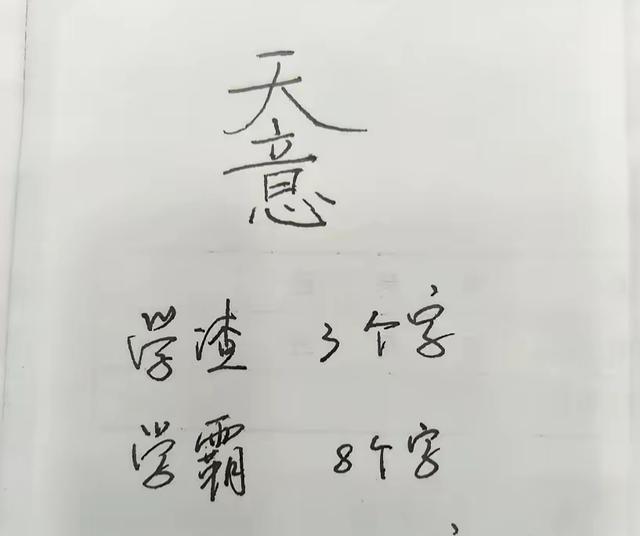 天
意
学渣 3个字
学霸 8个字